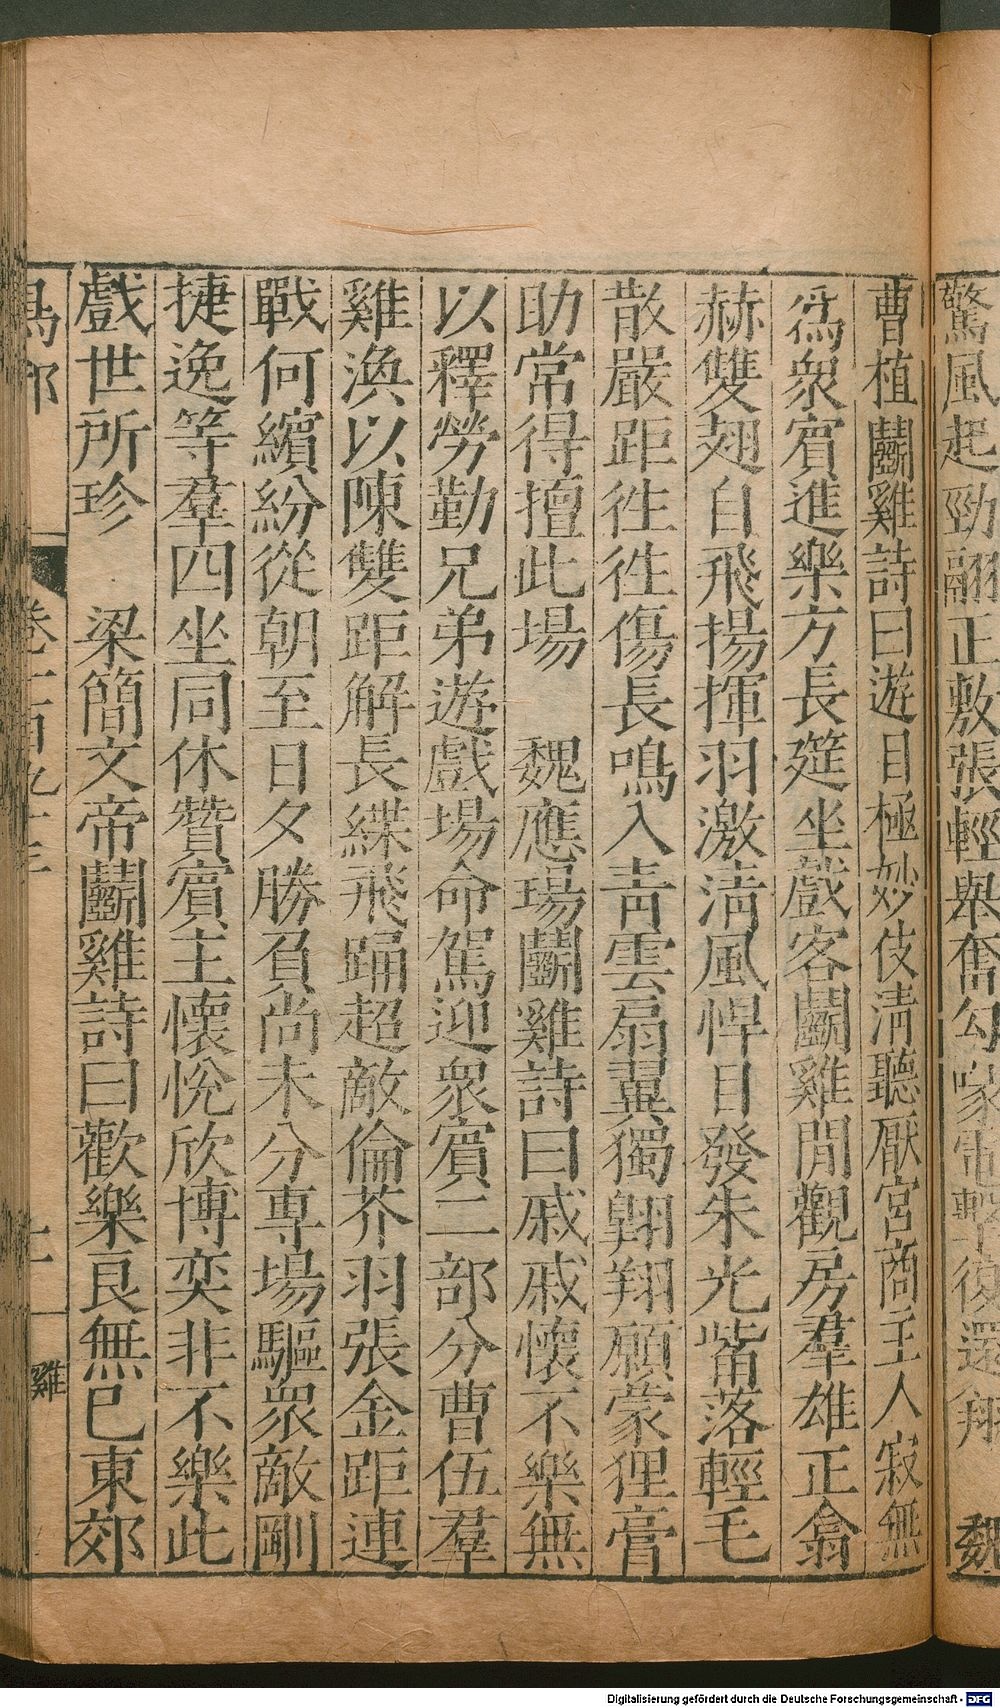 驚風起勁翮正敷張輕舉奮勾喙電擊復還翔　魏
曹植鬭雞詩曰遊目極妙伎淸聽厭宮商主人寂無
爲衆賓進樂方長筵坐戲客鬭雞閒觀房羣雄正翕
赫雙翅自飛揚揮羽激淸風悍目發朱光觜落輕毛
散嚴距徃徃傷長鳴入靑雲扇翼獨翺翔願蒙狸膏
助常得擅此場　魏應瑒鬭雞詩曰戚戚懷不樂無
以釋勞勤兄弟遊戲場命駕迎衆賓二部分曹伍羣
雞渙以陳雙距解長緤飛踊超敵倫芥羽張金距連
戰何繽紛從朝至日夕勝負尚未分專場驅衆敵剛
捷逸等羣四坐同休贊賓主懷悅欣博奕非不樂此
戲世所珍　梁簡文帝鬭雞詩曰歡樂良無已東郊
鳥部
雞
Digitalisierung gefördert durch die Deutsche Forschungsgemeinschaft - DFG